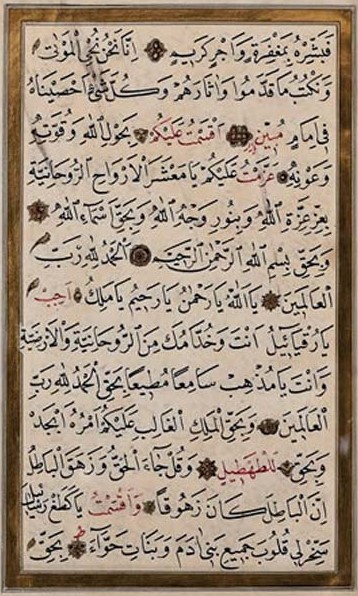 فَبَشِّرْهُ بِمَغْفِرَةٍ وَاَجْرٍ كَرِيمٍ اِنَّا نَحْنُ نُحْيِ الْمَوْتٰى
وَنَكْتُبُ مَا قَدَّمُوا وَاٰثَارَهُمْ وَكُلَّ شَيْءٍ اَحْصَيْنَاهُ
فِي اِمَامٍ مُبِينٍ اَقْسَمْتُ عَلَيْكُمْ بِحَوْلِ اللّٰهِ وَقُوَّتِهِ
وَعَوْنِهِ عَزَمْتُ عَلَيْكُمْ يَا مَعْشَرَ الْاَرْوَاحِ الرُّوحَانِيَّةِ
بِعِزِّ عِزَّةِ اللّٰهِ وَبِنُورِ وَجْهِ اللّٰهِ وَبِحَقِّ اَسْمَاءِ اللّٰهِ
وَبِحَقِّ بِسْمِ اللّٰهِ الرَّحْمٰنِ الرَّحِيمِ اَلْحَمْدُ لِلّٰهِ رَبِّ
الْعَالَمِينَ يَا اَللّٰهُ يَا رَحْمٰنُ يَا رَحِيمُ يَا مَلِكُ اَجِبْ
يَا رُقْيَائِيلُ اَنْتَ وَخُدَّامُكَ مِنَ الرُّوحَانِيَّةِ وَالْاَرْضِيَّةِ
وَاَنْتَ يَا مُذْهِبُ سَامِعًا مُطِيعًا بِحَقِّ الْحَمْدُ لِلّٰهِ رَبِّ
الْعَالَمِينَ وَبِحَقِّ الْمَلِكِ الْغَالِبِ عَلَيْكُمْ اَمْرُهُ اَبْجَدْ
وَبِحَقِّ لَلْطَهْطِيلِ وَقُلْ جَاءَ الْحَقُّ وَزَهَقَ الْبَاطِلُ
اِنَّ الْبَاطِلَ كَانَ زَهُوقًا وَاَقْسَمْتُ يَا
سَخِّرْ لِي قُلُوبَ جَمِيعِ بَنِي اٰدَمَ وَبَنَاتِ حَوَّاءَ بِحَقِّ